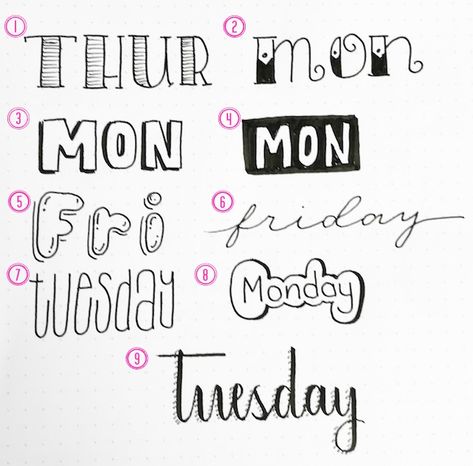 1 THUR 2 mon
3 MON 4 MON
5 Fri 6 friday
7 tuesday 8 Monday
9 Tuesday